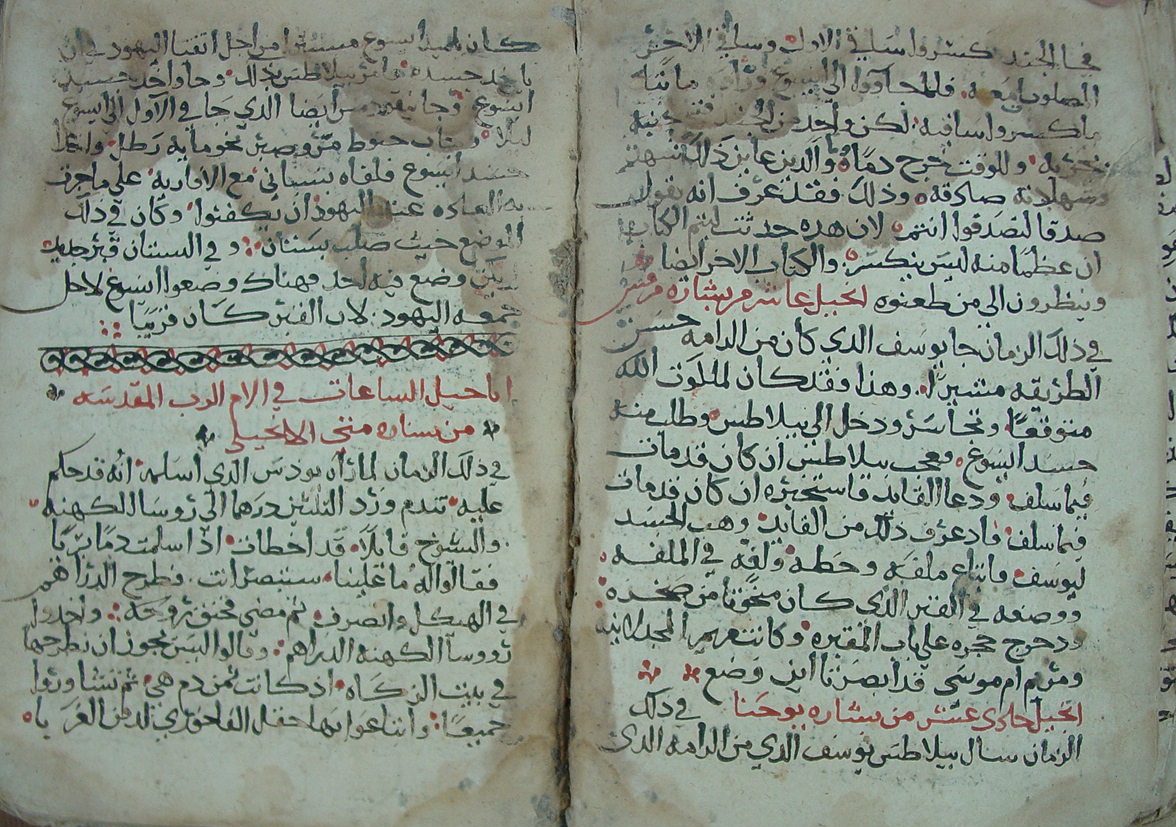 فجا الجند كسروا ساقي الاول وساقي الاخر
المصلوب معه فلما جاووا الى ايسوع وراوه مايتا
ما كسروا ساقيه لكن واحد من الجند فتح جنبه
بحربه وللوقت خرج دما وما والذي عاين ذلك شهد
وشهادته صادقه وذلك فقد عرف انه يقول
صدقا لتصدقوا انتم لان هذه حدثت ليتم الكتاب
ان عظما منه ليس ينكسر والكتاب الاخر ايضا
وينظرون الى من طعنوه انجيل عاشر من بشارة مرقس
في ذلك الزمان جا يوسف الذي كان من الرامه حسن
الطريقه مشيرا وهذا فقد كان لملكوت الله
متوقعا وتجاسر ودخل الى بيلاطس وطلب منه
جسد ايسوع وعجب بيلاطس ان كان قد مات
فيما سلف ودعا القايد فاستخبره ان كان قد مات
فيما سلف فاذ عرف ذلك من القايد وهب الجسد
ليوسف وابتاع ملفه وحطه ولفه في الملفه
ووضعه في القبر الذي كان منحوتا من صخره
ودحرج حجره على باب المقبره وكانت مريم المجدلانيه
ومريم ام موسى قد ابصرتا اين وضع
انجيل حادي عشر من بشاره يوحنا في ذلك
الزمان سال بيلاطس يوسف الذي من الرامه الذي
كان تلميذ ايسوع مستترا من اجل اتقيا اليهود في ان
ياخذ جسده فامر بيلاطس بذلك وجا واخذ جسد
ايسوع وجا نيقوديمس ايضا الذي جا في الاول الى ايسوع
ليلا وجاب حنوط مر وصبر نحو مايه رطل واخذا
جسد ايسوع فلفاه بسباني مع الافاويه على ما جرت
به العاده عند اليهود ان يكفنوا وكان في ذلك
الموضع حيث صلب بستان وفي البستان قبر جديد
ليس وضع فيه احد فهناك وضعوا ايسوع لاجل
جمعه اليهود لان القبر كان قريبا
اناجيل الساعات في الام الرب المقدسه
من بشاره متى الانجيلي
في ذلك الزمان لما راه يودس الذي اسلمه انه قد حكم
عليه تندم ورد الثلثين درهما الى روسا الكهنه
والشيوخ قايلا قد اخطات اذ اسلمت دما بريا
فقالوا له ما علينا ستبصر انت فطرح الدراهم
في الهيكل وانصرف ثم مضى فخنق روحه واخذوا
رووسا الكهنه الدراهم وقالوا ليس يجوز ان نطرحها
في بيت الزكاه اذ كانت ثمن دم هي ثم تشاوروا
جميعا وابتاعوا بها حقل الفاخوري لدفن الغربا